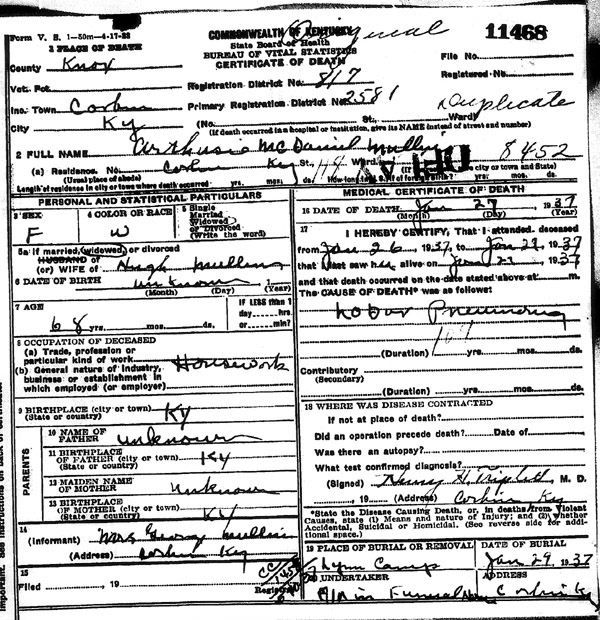 Form V. S. 1-50m-4-17-33
COMMONWEALTH OF KENTUCKY
Original
11468
State Board of Health
BUREAU OF VITAL STATISTICS
CERTIFICATE OF DEATH
1 PLACE OF DEATH
County Knox
File No.
Registered No.
Vot. Pct
Registration District No. 817
Inc. Town Corbin
Primary Registration District No. 2581
Duplicate
City Ky
(No. St., Ward)
(If death occurred in a hospital or institution, give its NAME instead of street and number)
2 FULL NAME Arthusia McDaniel Mullins
8452
(a) Residence. No. Corbin Ky St., Ward.
(Usual place of abode)
city or town and State)
Length of residence in city or town where death occurred yrs. mos. ds.
yrs. mos. ds.
PERSONAL AND STATISTICAL PARTICULARS
3 SEX F
4 COLOR OR RACE W
5 Single
Married
Widowed
or Divorced
(Write the word)
5a If married, widowed, or divorced
HUSBAND of
(or) WIFE of Hugh Mullins
6 DATE OF BIRTH unknown, 1
(Month) (Day) (Year)
7 AGE
68 yrs. mos. ds.
If LESS than 1
day hrs.
or min?
8 OCCUPATION OF DECEASED
(a) Trade, profession or
particular kind of work
(b) General nature of Industry,
business or establishment in
which employed (or employer)
Housework
9 BIRTHPLACE (city or town) Ky
(State or country)
PARENTS
10 NAME OF
FATHER unknown
11 BIRTHPLACE
OF FATHER (city or town) Ky
(State or country)
12 MAIDEN NAME
OF MOTHER unknown
13 BIRTHPLACE
OF MOTHER (city or town)
(State or country) Ky
14
(Informant) Mrs George Mullins
(Address) Corbin Ky
15
Filed , 19
Registrar
MEDICAL CERTIFICATE OF DEATH
16 DATE OF DEATH Jan 27 1937
(Month) (Day) (Year)
17
I HEREBY CERTIFY, That I attended deceased
from Jan 26, 1937, to Jan 27, 1937
that I last saw her alive on Jan 27, 1937
and that death occurred on the date stated above at m.
The CAUSE OF DEATH* was as follows:
Lobar Pneumonia
(Duration) yrs. mos. ds.
Contributory
(Secondary)
(Duration) yrs. mos. ds.
18 WHERE WAS DISEASE CONTRACTED
If not at place of death?
Did an operation precede death? Date of
Was there an autopsy?
What test confirmed diagnosis?
(Signed) M. D.
, 19 (Address) Corbin Ky
*State the Disease Causing Death, or, in deaths from Violent
Causes, state (1) Means and nature of Injury; and (2) whether
Accidental, Suicidal or Homicidal. (See reverse side for addi-
tional space.)
19 PLACE OF BURIAL OR REMOVAL
DATE OF BURIAL
Lynn Camp
Jan 29, 1937
20 UNDERTAKER
ADDRESS
Funeral Home Corbin Ky